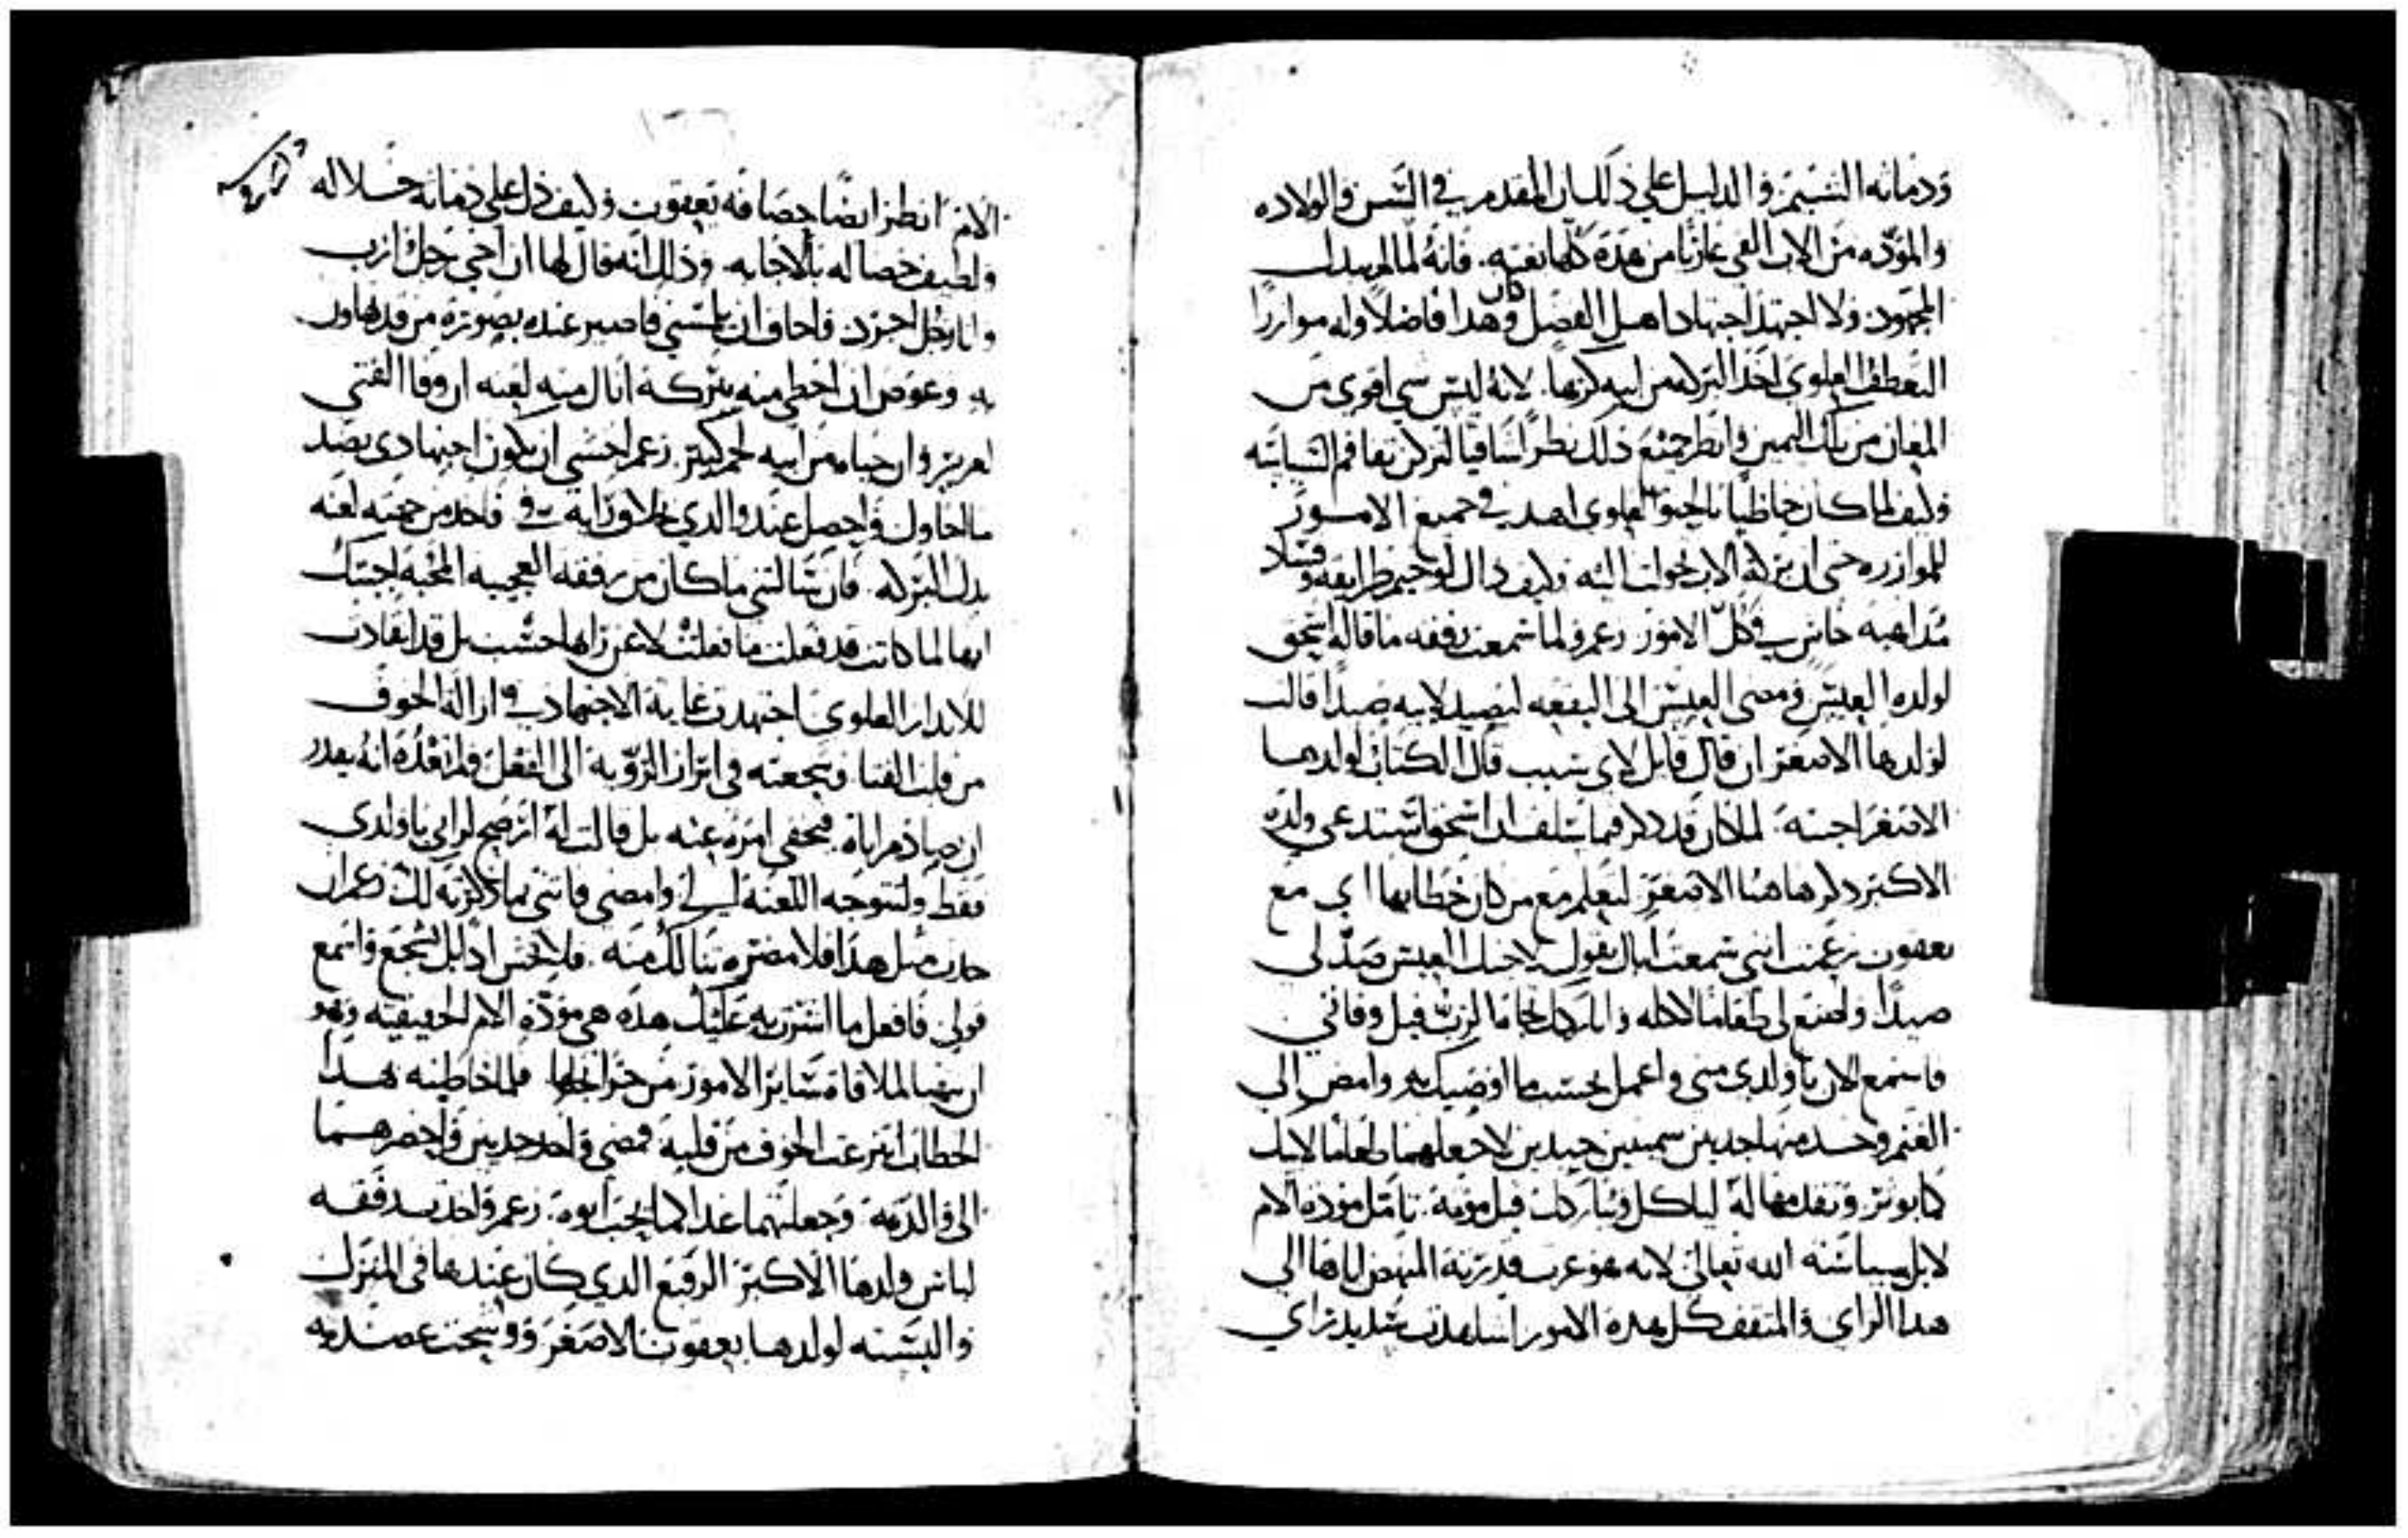 ودماثه الشيم والدليل علي ذلك ان المقدم في السن والولاده
والموده من الاب الفي عاريا من هذه كلها بغته. فانه لما لم يبدل
المجهود ولا اجتهد اجتهاد اهل الفضل وكان هذا فاضلا وله موازرا
التعطف العلوي اخذ البركه من ابيه كرها. لانه ليس شي اقوي من
المعان من تلك اليمين وانظر جميع ذلك نظرا شافيا لتركن تفاقم السياسه
وكيف لما كان حاظيا بالحنو العلوي اهد في جميع الامور
للموازره حتي ان بركه الاب تحولت اليه وكيف ذاك لوخيم طرايقه وفساد
مذاهبه خاس في كل الامور زعم ولما سمعت رفقه ما قاله اسحق
لولده العيس ومضي العيس الي البقعه ليصيد لابيه صيدا قالت
لولدها الاصغر ان قال قايل لاي سبب قال الكتاب لولدها
الاصغر اجبته. لما كان قد ذكر فيما سلف ان اسحق استدعي ولده
الاكبر ذكر هاهنا الاصغر ليعلم مع من كان خطابها اي مع
يعقوب زعمت انني سمعت اباك يقول لاخيك العيس صد لي
صيدا واصنع لي طعاما لاكله واباركك تجاه الرب قبل وفاتي
فاسمع الان ياولدي مني واعمل بحسب ما اوصيك به وامض الي
الغنم وخد منها جديين سمينين جيدين لاجعلهما طعاما لابيك
كما يوتر وتقدمها له لياكل ويباركك قبل موته. تامل موده الام
لابل سياسه الله تعالي لانه هو عرب قدرته المنهض اياها الي
هذا الراي والمتقف كل هذه الامور اشاهدت شديد راي
الام انظر ايضا حصافه يعقوب وكيف دل علي دماثه خلاله
ولطيف خصاله بالاجابه. وذلك انه قال لها ان اخي رجل ازب
وانا رجل اجرد فاخاف ان يلمسني فاصير عنده بصوره من قد تهاون
به وعوض ان احظي منه ببركه انال منه لعنه ان وفا الفتي
لعزيز وان حياه من ابيه لجم كبير. زعم اخشي ان يكون اجتهادي بضد
ما احاول واحصل عند والدي بخلاف رايه في فاخد من جهته لعنه
بدل البركه. فان سالتني ما كان من رفقه العجيبه المحبه اجبتك
انها لما كانت قد فعلت ما فعلت لا عن رايها حسب بل قد انقادت
للاندار العلوي اجتهدت غايه الاجتهاد في ازاله الخوف
من قلب الفتا وشجعته في ابراز الرويه الي الفعل ولم تعده انه يقدر
ان يصادم اباه فيخفي امره عنه بل قالت له ازضخ لرايي ياولدي
فقط ولتتوجه اللعنه الي وامضي فاتني بما ذكرته لك زعم ان
حدث مثل هذا فلا مضره تنالك منه. فلا تخش ادا بل تشجع واسمع
قولي فافعل ما اشرت به عليك هذه هي موده الام الحقيقيه وهو
ان تتهيا لملاقاة ساير الامور من جرا نجلها فلما خاطبته هذا
الخطاب انتزعت الخوف من قلبه فمضي واخد جديين واحضرهما
الي والدته وجعلتهما غدا كما يحب ابوه. زعم واخدت رفقه
لباس ولدها الاكبر الرفيع الدي كان عندها في المنزل
والبسته لولدها يعقوب الاصغر ووشحت عضديه